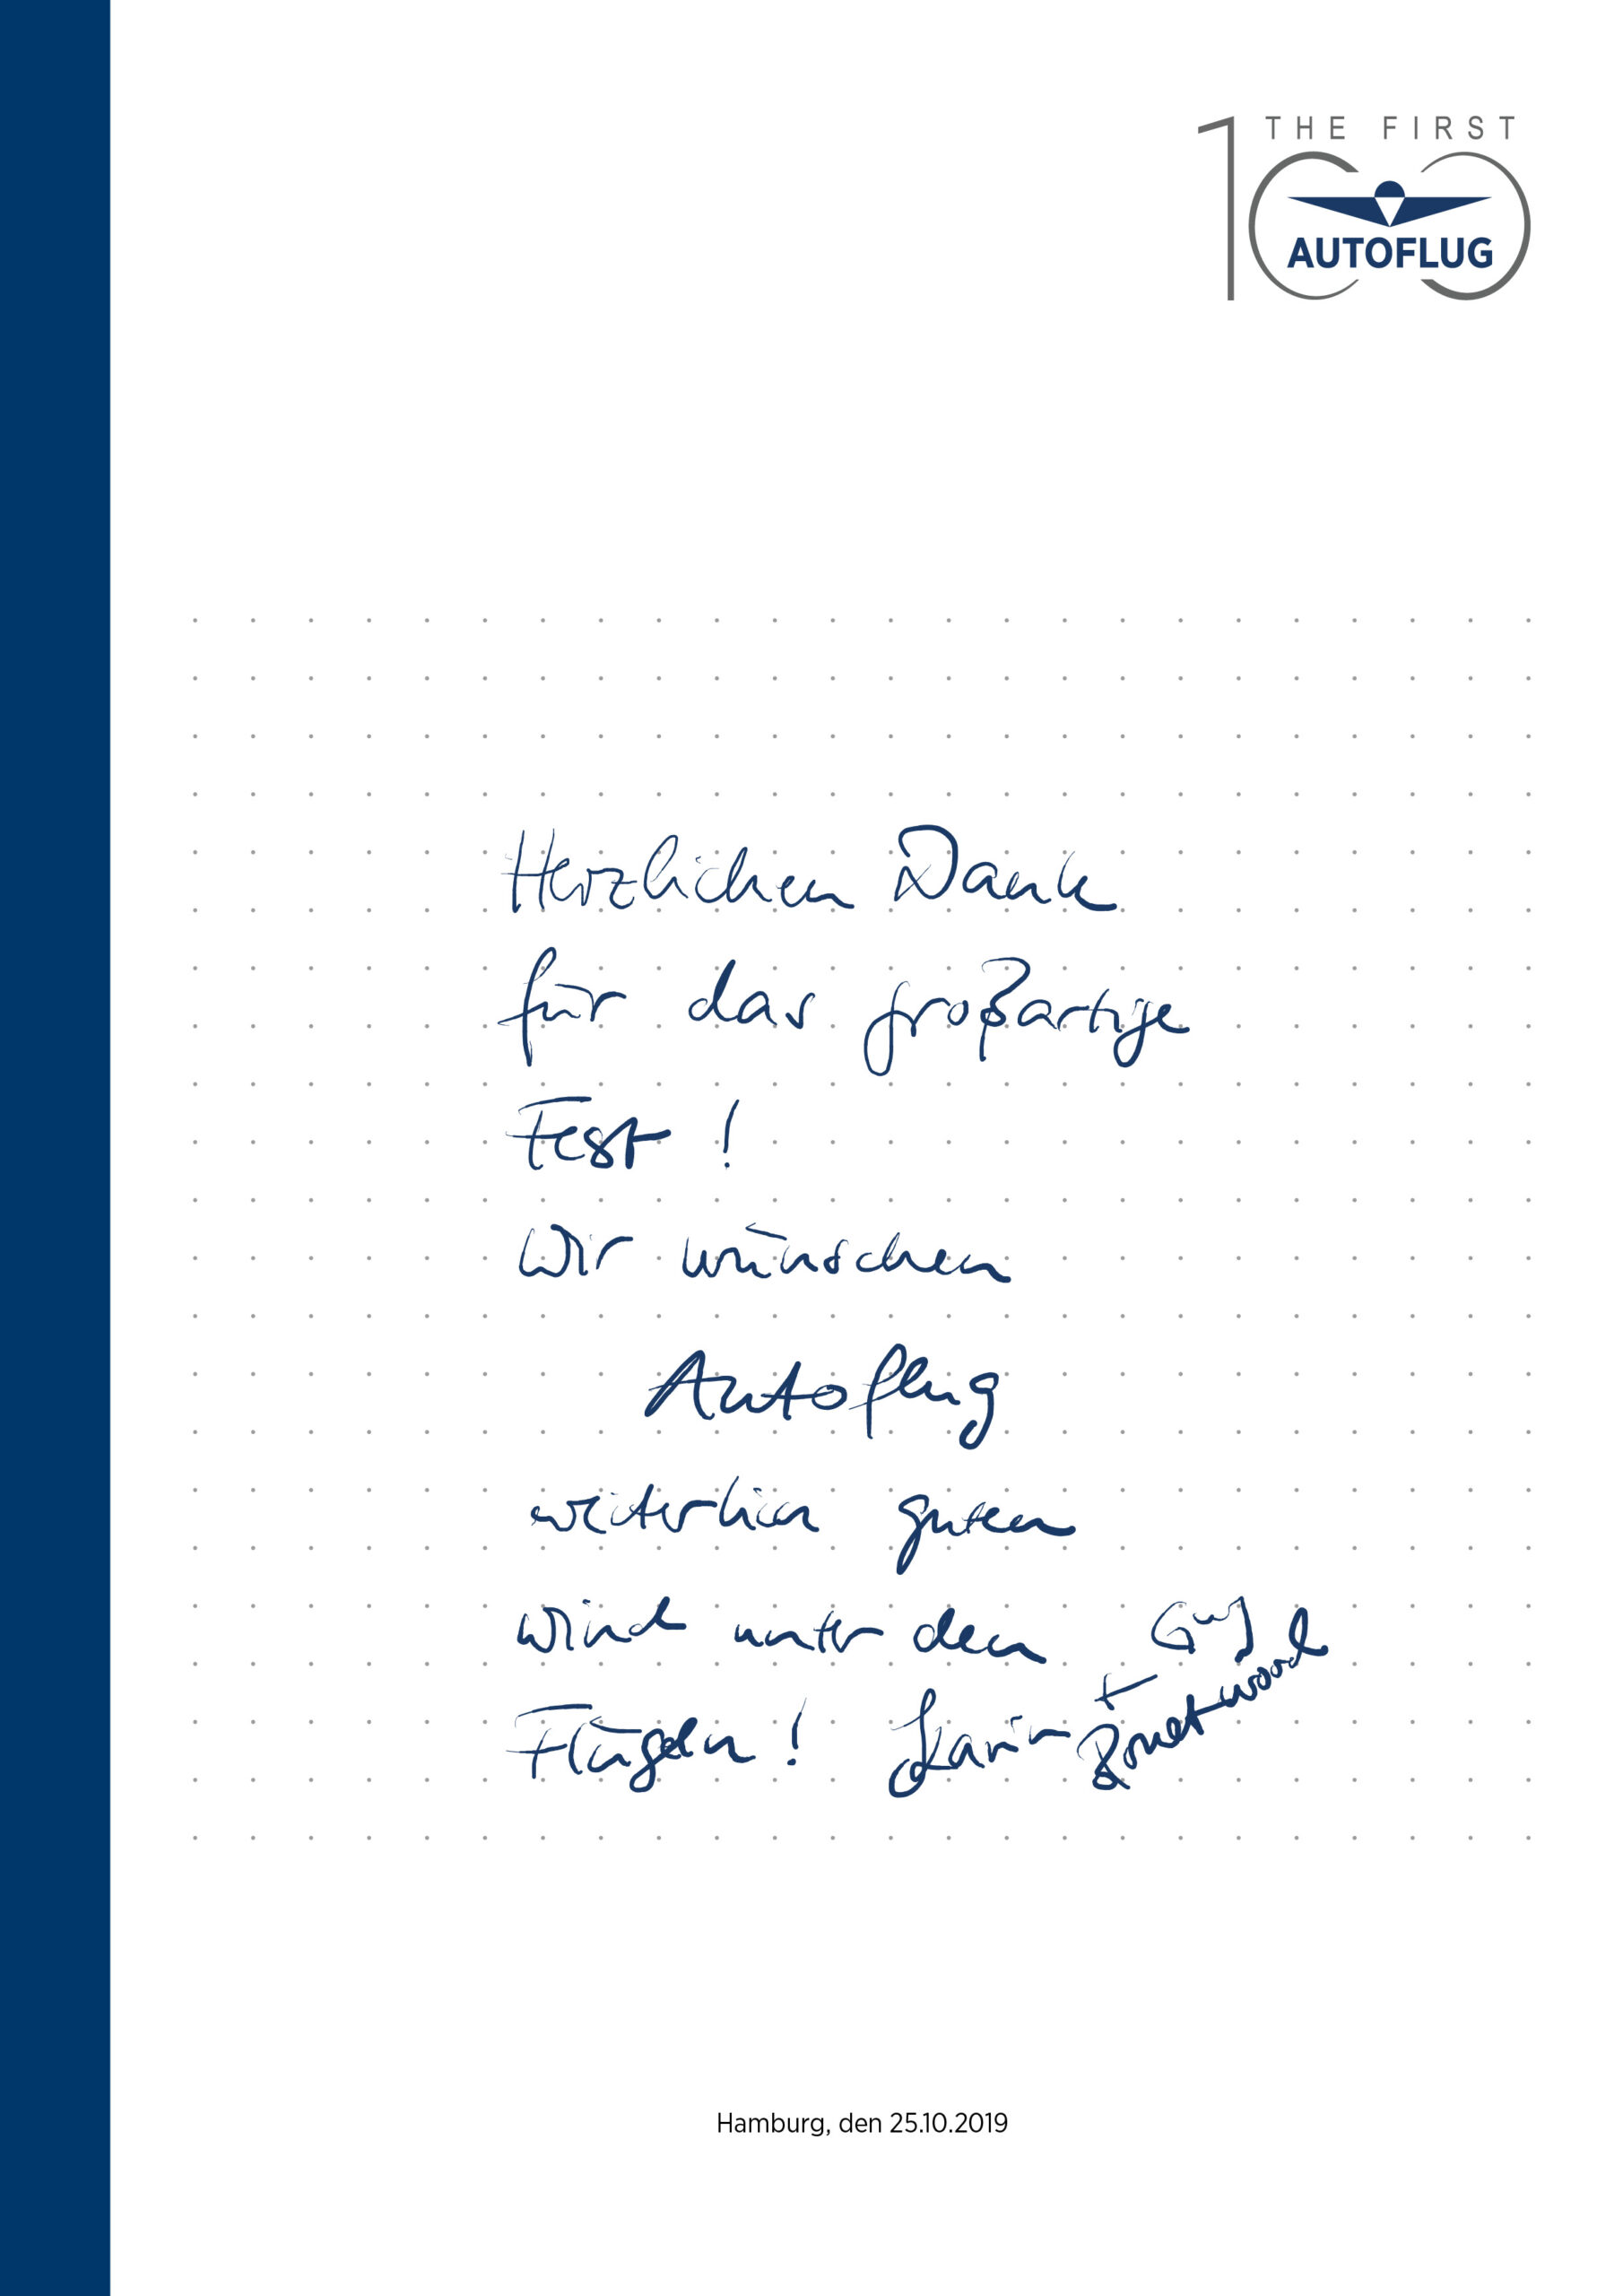 THE FIRST
100
AUTOFLUG
Herzlichen Dank
für das großartige
Fest !
Wir wünschen
Autoflug
weiterhin guten
Wind unter den
Flügeln !
Hamburg, den 25.10.2019